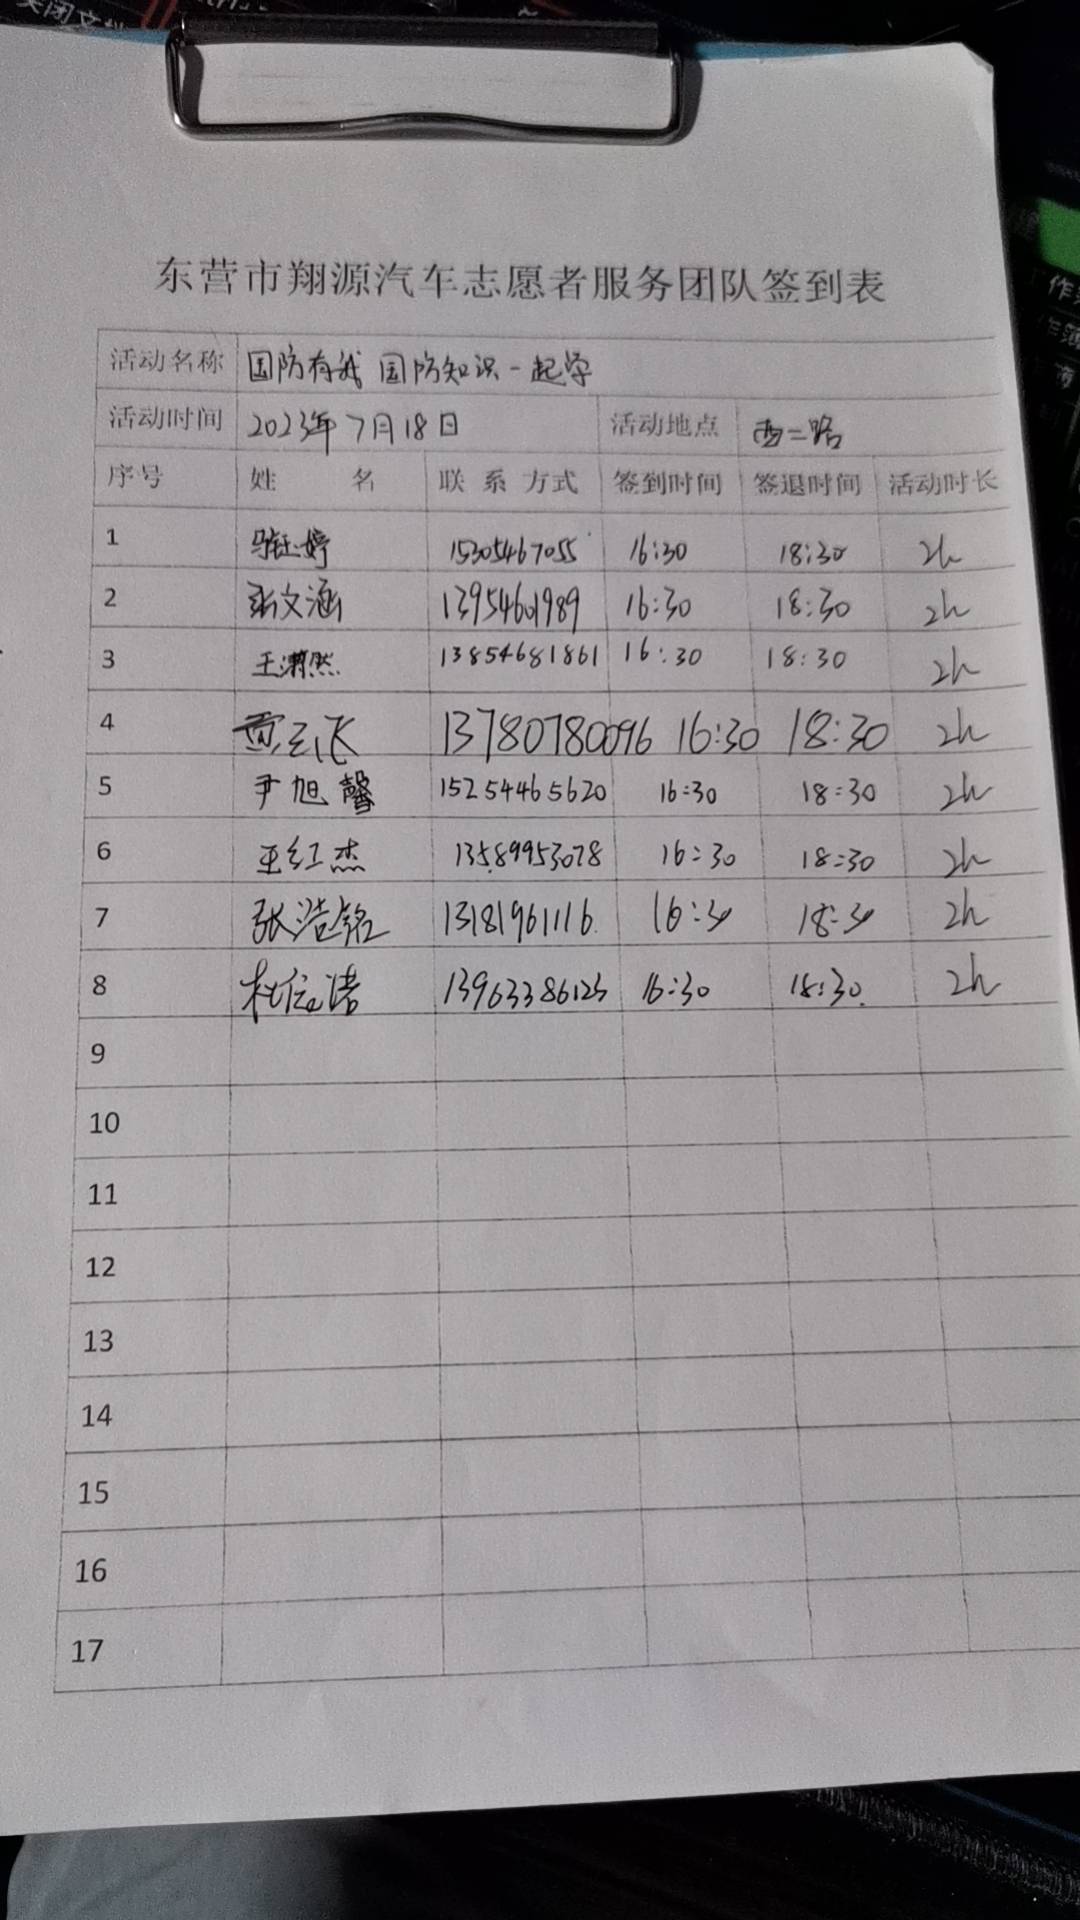 关闭文
东营市翔源汽车志愿者服务团队签到表
活动名称 国防有我 国防知识一起学
活动时间 2023年7月18日 活动地点 西二路
序号 姓 名 联系方式 签到时间 签退时间 活动时长
1 骆钰婷 15305467055 16:30 18:30 2h
2 张文涵 13954601989 16:30 18:30 2h
3 王潇然 13854681861 16:30 18:30 2h
4 黄云飞 13780780096 16:30 18:30 2h
5 尹旭馨 15254465620 16:30 18:30 2h
6 王红杰 13589953078 16:30 18:30 2h
7 张浩铭 13181961116 16:30 18:30 2h
8 杜信诺 13963386123 16:30 18:30 2h
9
10
11
12
13
14
15
16
17